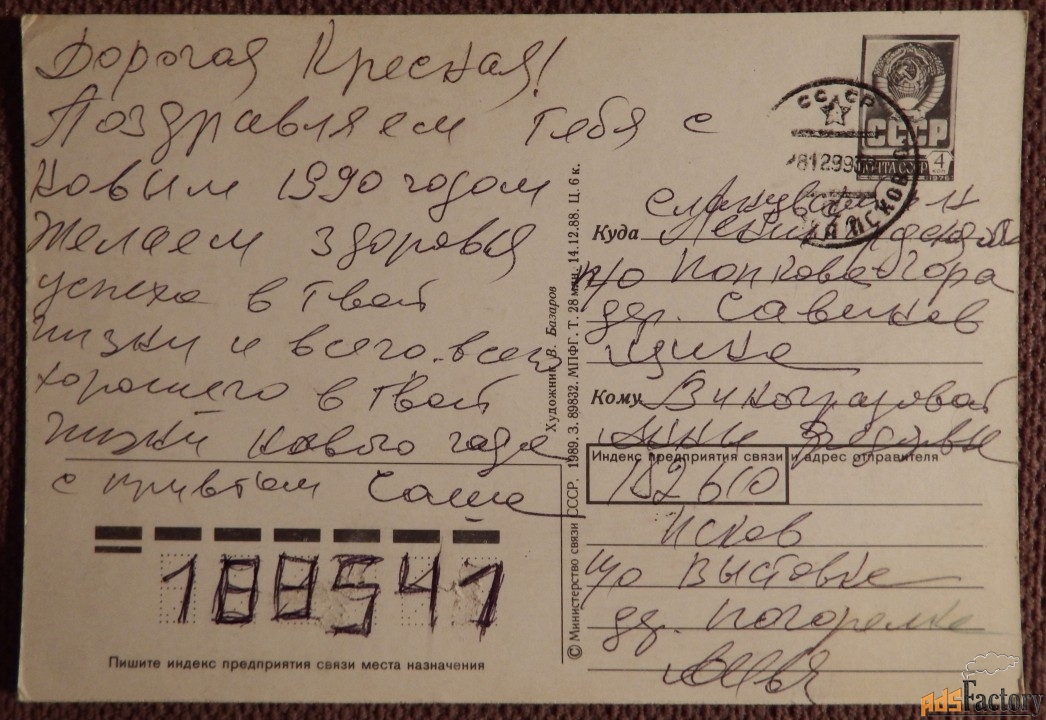 Дорогая Кресная!
Поздравляем тебя с
Новым 1990 годом
Желаем здоровья
успеха в твоей
жизни и всего. всего
хорошего в твоей
жизни нового года
с приветом Саша
188541
Пишите индекс предприятия связи места назначения
© Министерство связи СССР, 1989. З. 89832. МПФГ. Т. 28 млн. 14.12.88. Ц. 6 к.
Художник В. Базаров
СССР
СССР
ПОЧТА СССР 4 коп
1976
Куда
п/о Попкова-Гора
дер. Савинов
щина
Кому Виноградовой
Анни
Индекс предприятия связи и адрес отправителя
182610
Псков
п/о Выставка
дер. Погорелка
AdsFactory